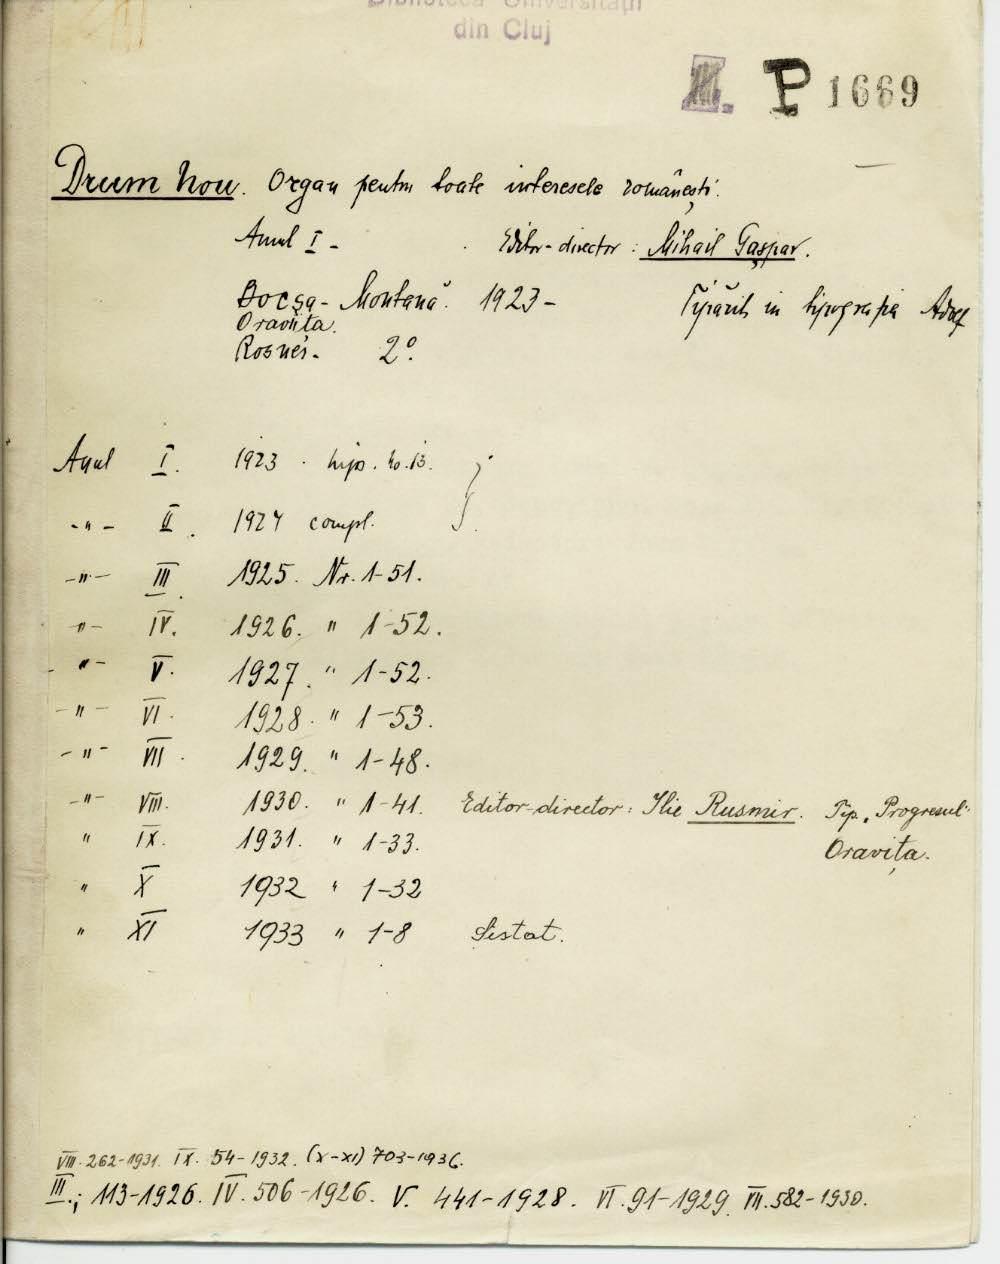 Biblioteca Universității
din Cluj
P 1669
Drum Nou. Organ pentru toate interesele românești.
Anul I - Editor-director: Mihail Gașpar.
Bocșa-Montană. 1923- Tipărit in tipografia Adolf
Oravița.
2°.
Anul I. 1923 - lips. No. 13.
-"- II. 1924 compl.
-"- III. 1925. Nr. 1-51.
-"- IV. 1926. " 1-52.
-"- V. 1927. " 1-52.
-"- VI. 1928. " 1-53.
-"- VII. 1929. " 1-48.
-"- VIII. 1930. " 1-41. Editor-director: Ilie Rusmir. Tip. „Progresul"
" IX. 1931. " 1-33. Oravița.
" X 1932 " 1-32
" XI 1933 " 1-8 Sistat.
VIII. 262-1931. IX. 54-1932. (X-XI) 703-1936.
III.; 113-1926. IV. 506-1926. V. 441-1928. VI. 91-1929. VII. 582-1930.